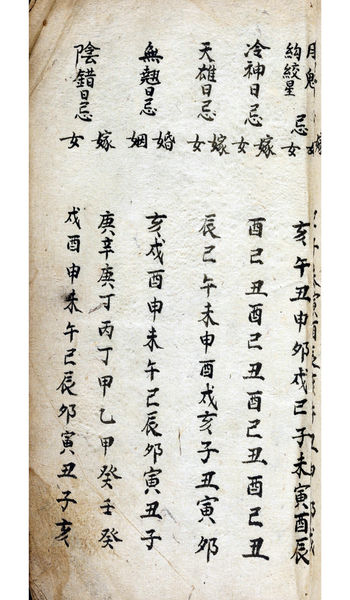 月鬼
絞星 忌女 亥午丑申卯戌巳子未寅酉辰
冷神日忌嫁女 酉巳丑酉巳丑酉巳丑酉巳丑
天雄日忌嫁女 辰巳午未申酉戌亥子丑寅卯
無翹日忌婚姻 亥戌酉申未午巳辰卯寅丑子
陰錯日忌嫁女 庚辛庚丁丙丁甲乙甲癸壬癸
戌酉申未午巳辰卯寅丑子亥